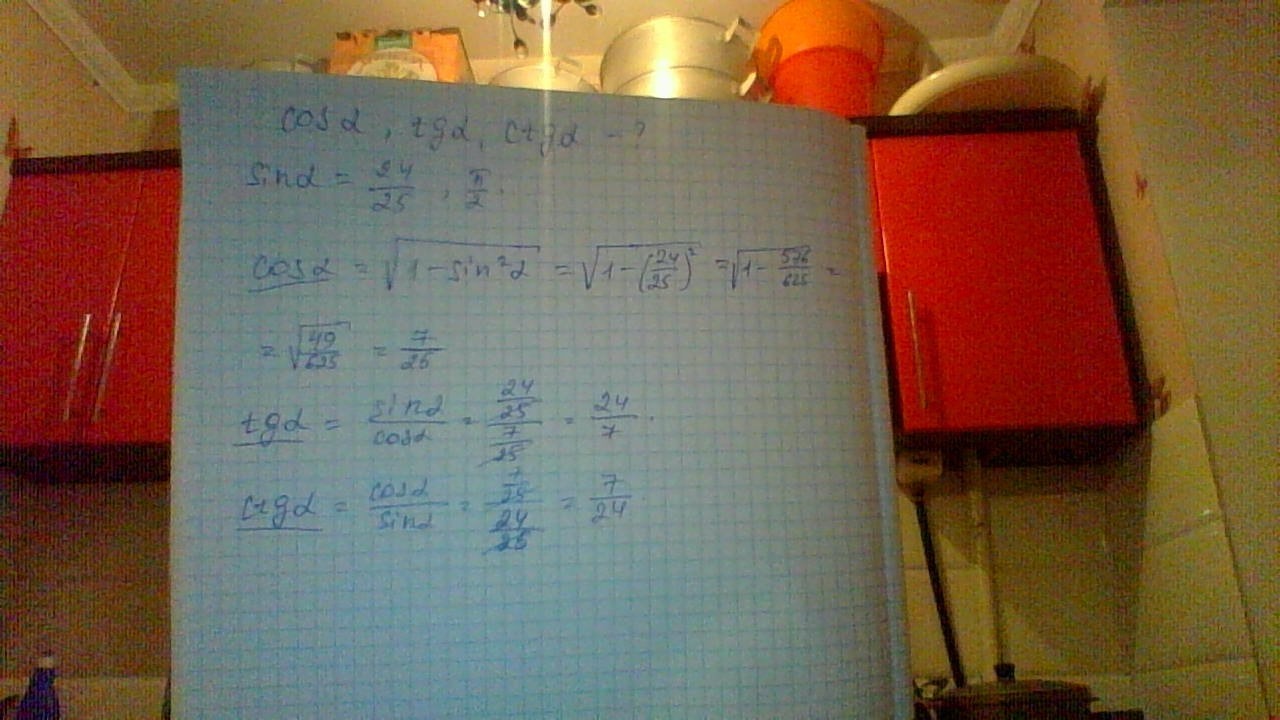 cos α, tg α, ctg α - ?
sin α = 24/25, π/2.
cos α = √(1 - sin²α) = √(1 - (24/25)²) = √(1 - 576/625) =
= √(49/625) = 7/25
tg α = sin α/cos α = (24/25)/(7/25) = 24/7.
ctg α = cos α/sin α = (7/25)/(24/25) = 7/24